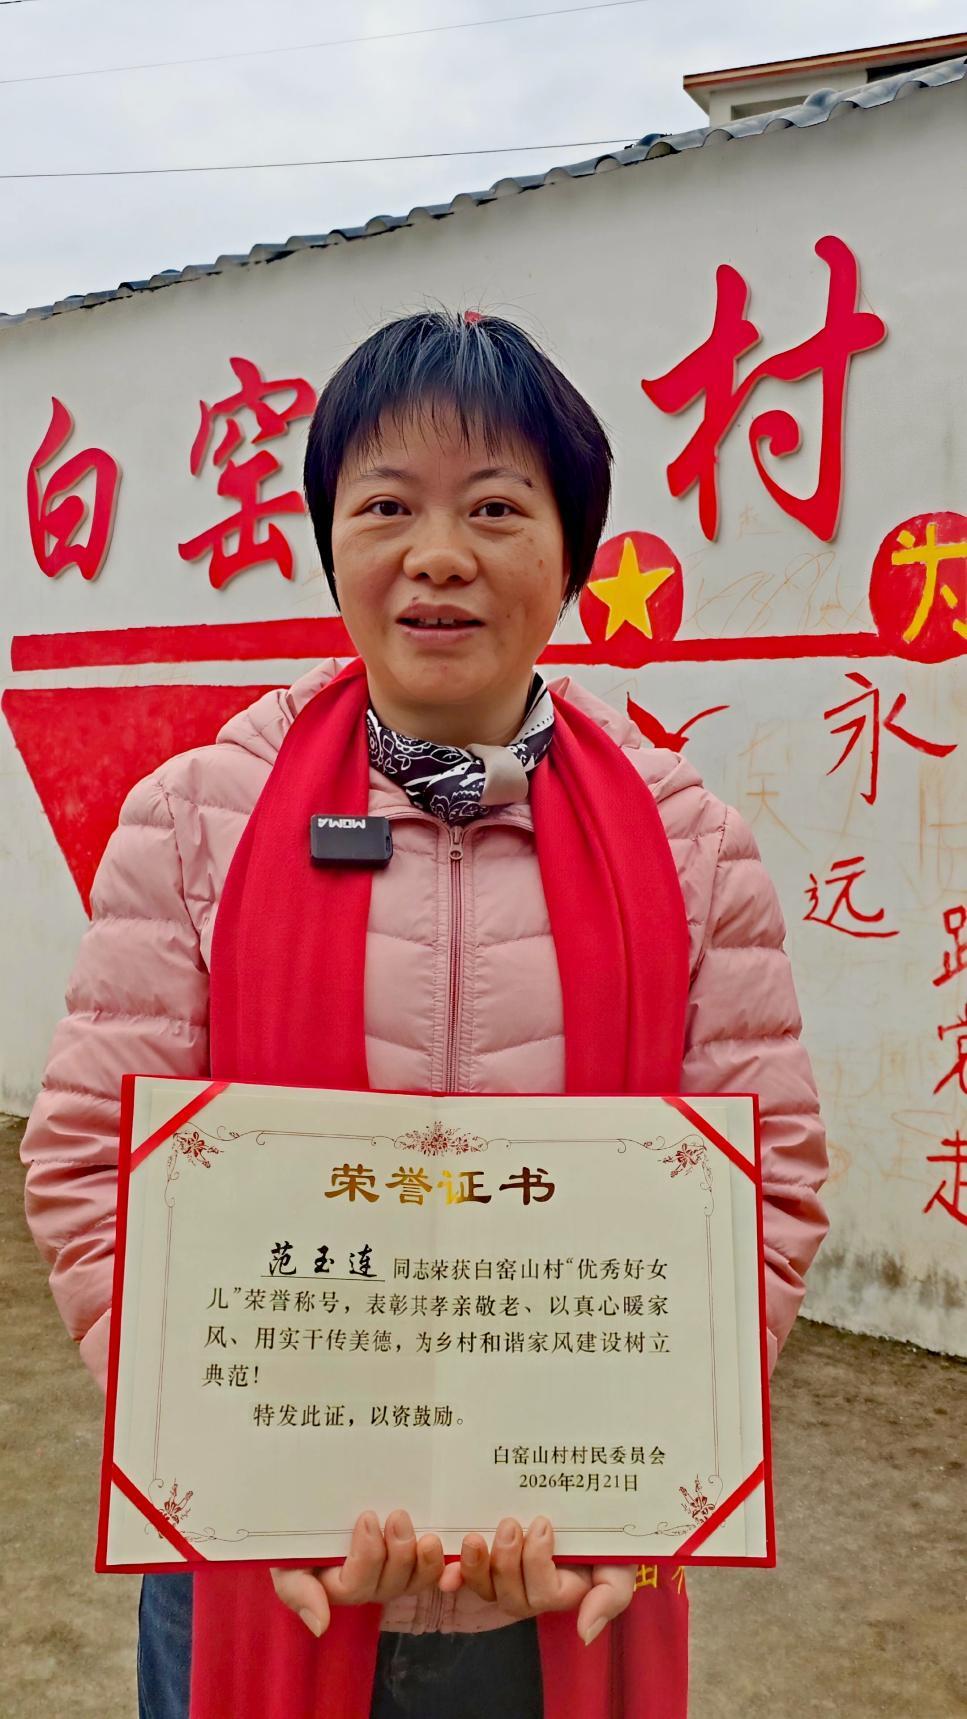 白窑 村
为
永
远
跟
党
走
MOMA
荣誉证书
范玉连 同志荣获白窑山村“优秀好女
儿”荣誉称号，表彰其孝亲敬老、以真心暖家
风、用实干传美德，为乡村和谐家风建设树立
典范！
特发此证，以资鼓励。
白窑山村村民委员会
2026年2月21日